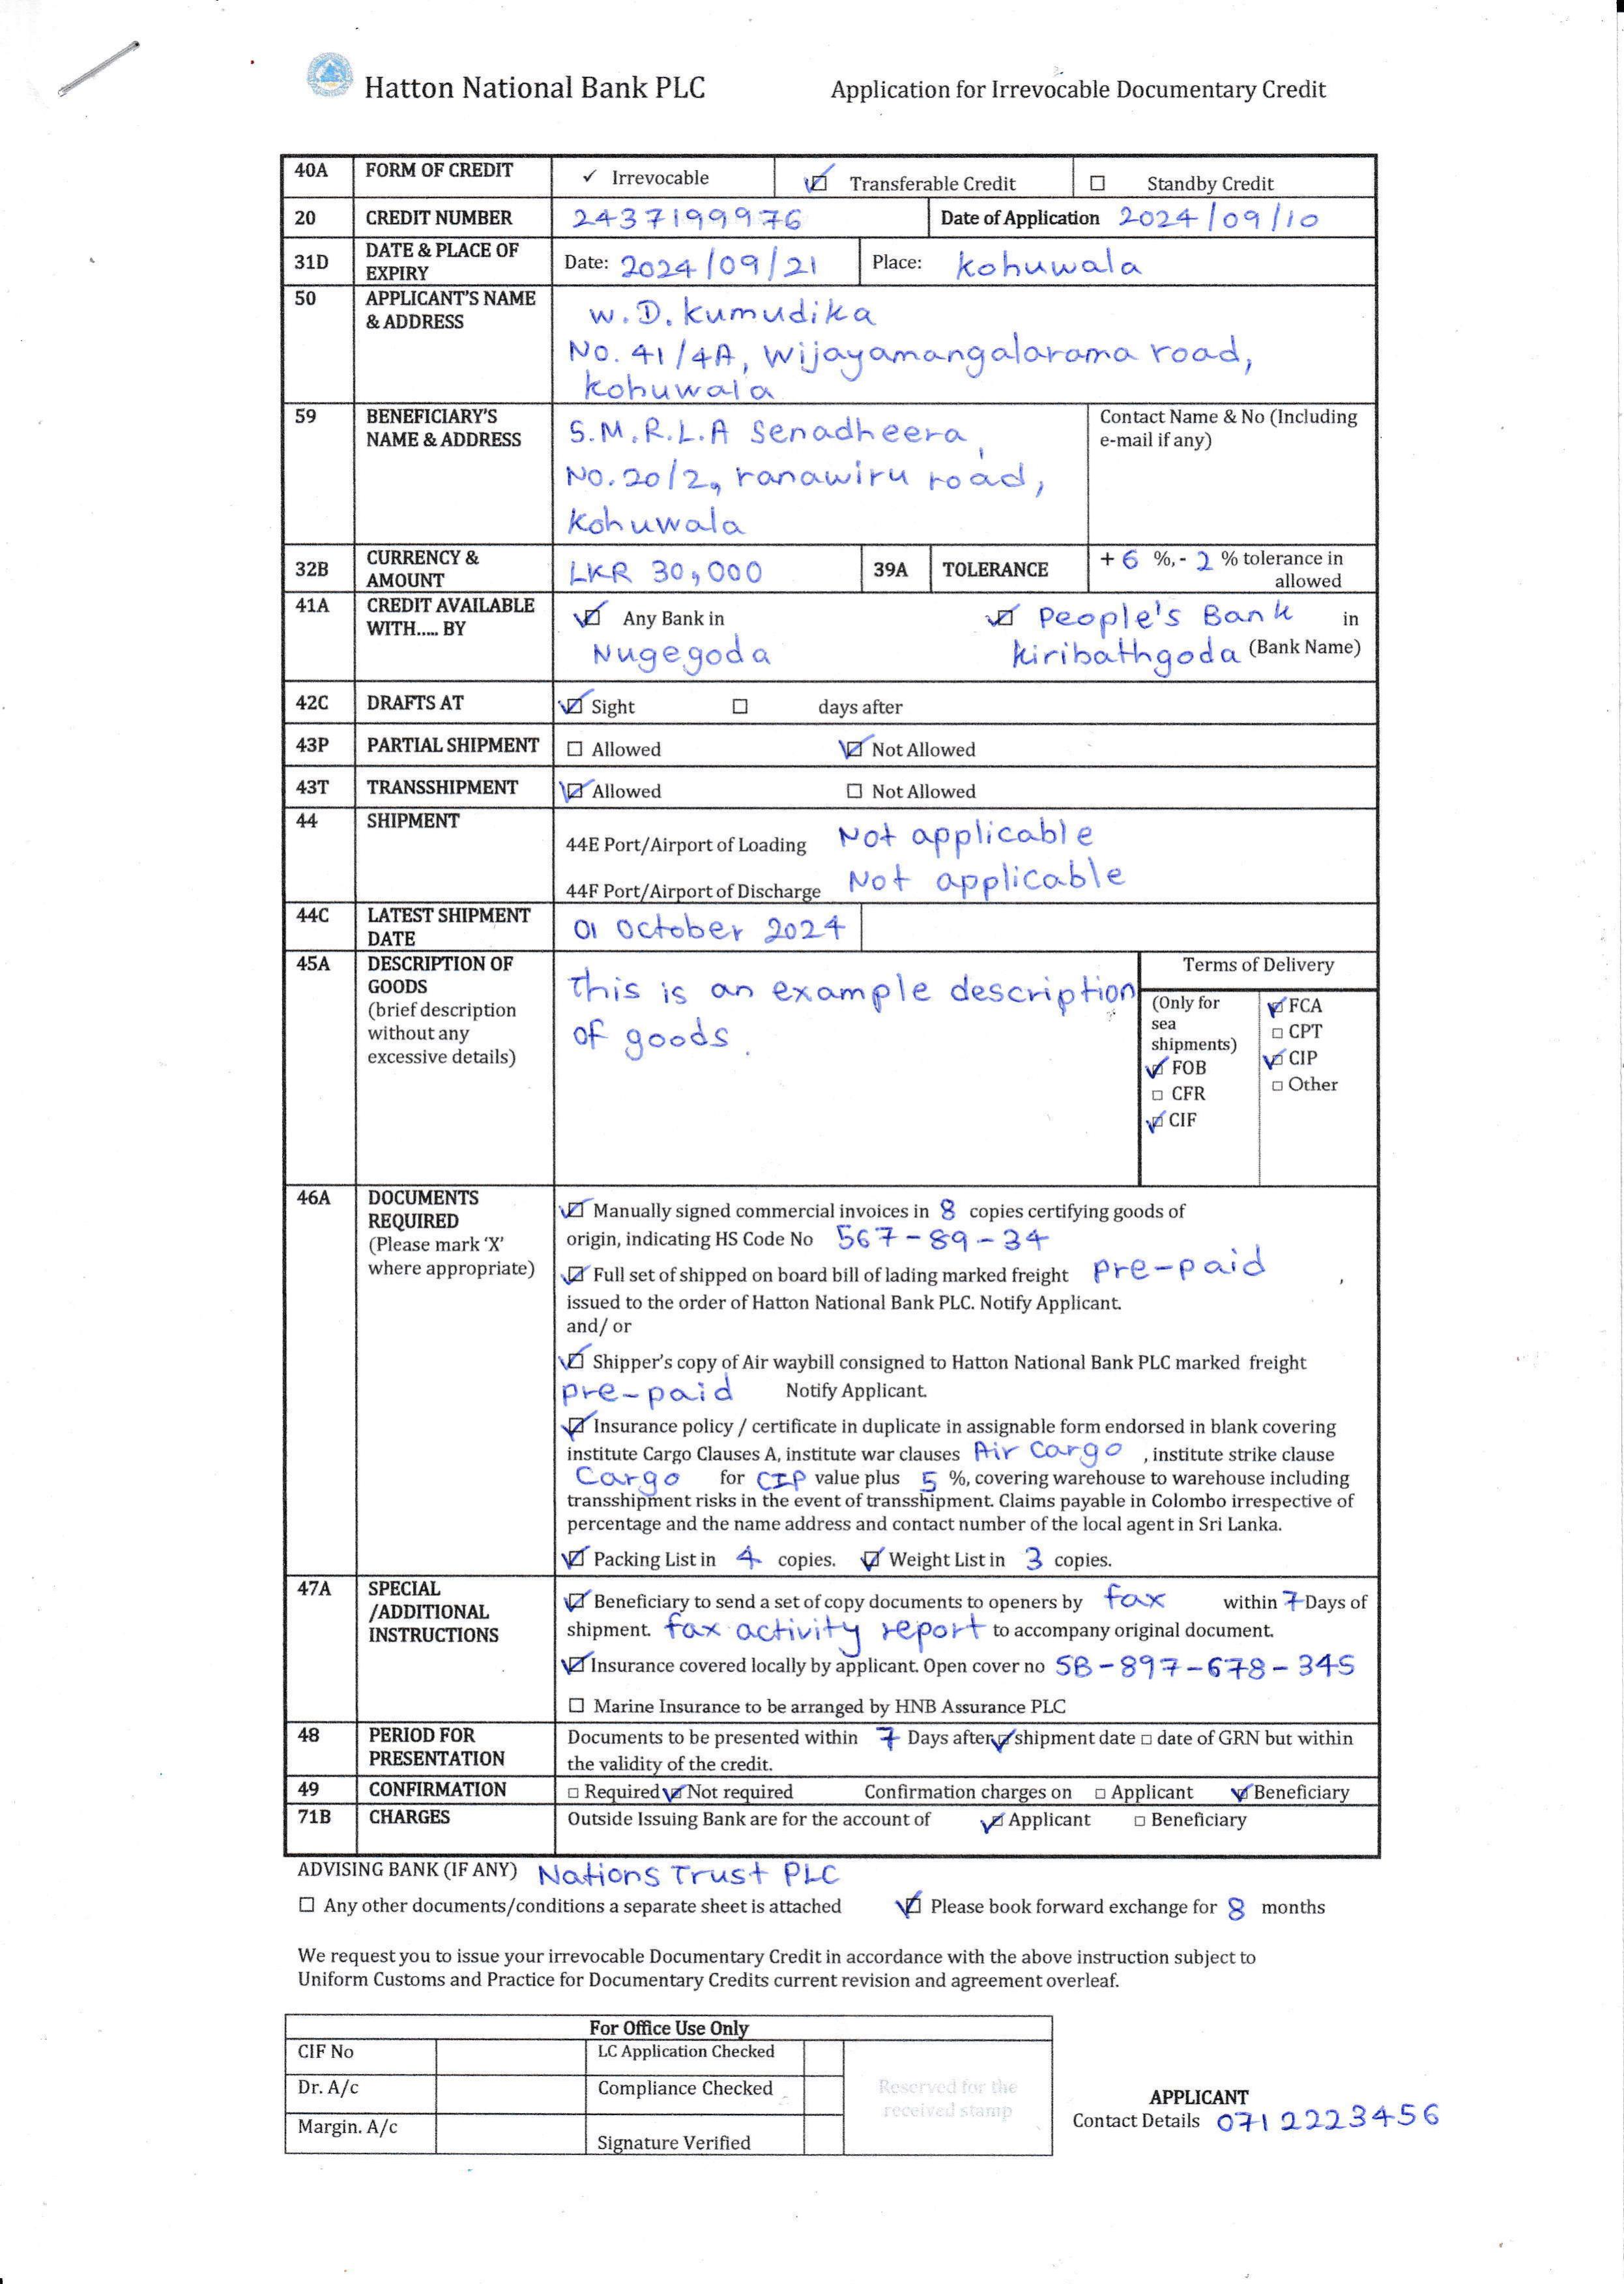 Hatton National Bank PLC Application for Irrevocable Documentary Credit
40A FORM OF CREDIT ✓ Irrevocable ☑ Transferable Credit ☐ Standby Credit
20 CREDIT NUMBER 2437199976 Date of Application 2024/09/10
31D DATE & PLACE OF EXPIRY Date: 2024/09/21 Place: Kohuwala
50 APPLICANT'S NAME & ADDRESS
W.D. Kumudika
No. 41/4A, Wijayamangalarama road,
Kohuwala
59 BENEFICIARY'S NAME & ADDRESS
S.M.R.L.A Senadheera,
No. 20/2, ranawiru road,
Kohuwala
Contact Name & No (Including
e-mail if any)
32B CURRENCY & AMOUNT LKR 30,000 39A TOLERANCE + 6 %, - 2 % tolerance in
allowed
41A CREDIT AVAILABLE WITH..... BY
☑ Any Bank in
Nugegoda
☑ People's Bank in
Kiribathgoda (Bank Name)
42C DRAFTS AT ☑ Sight ☐ days after
43P PARTIAL SHIPMENT ☐ Allowed ☑ Not Allowed
43T TRANSSHIPMENT ☑ Allowed ☐ Not Allowed
44 SHIPMENT
44E Port/Airport of Loading Not applicable
44F Port/Airport of Discharge Not applicable
44C LATEST SHIPMENT DATE 01 October 2024
45A DESCRIPTION OF
GOODS
(brief description
without any
excessive details)
This is an example description
of goods.
Terms of Delivery
(Only for
sea
shipments)
☑ FOB
☐ CFR
☑ CIF
☑ FCA
☐ CPT
☑ CIP
☐ Other
46A DOCUMENTS
REQUIRED
(Please mark 'X'
where appropriate)
☑ Manually signed commercial invoices in 8 copies certifying goods of
origin, indicating HS Code No 567-89-34
☑ Full set of shipped on board bill of lading marked freight pre-paid ,
issued to the order of Hatton National Bank PLC. Notify Applicant.
and/ or
☑ Shipper's copy of Air waybill consigned to Hatton National Bank PLC marked freight
pre-paid Notify Applicant.
☑ Insurance policy / certificate in duplicate in assignable form endorsed in blank covering
institute Cargo Clauses A, institute war clauses Air Cargo , institute strike clause
Cargo for CIP value plus 5 %, covering warehouse to warehouse including
transshipment risks in the event of transshipment. Claims payable in Colombo irrespective of
percentage and the name address and contact number of the local agent in Sri Lanka.
☑ Packing List in 4 copies. ☑ Weight List in 3 copies.
47A SPECIAL
/ADDITIONAL
INSTRUCTIONS
☑ Beneficiary to send a set of copy documents to openers by fax within 7 Days of
shipment. fax activity report to accompany original document.
☑ Insurance covered locally by applicant. Open cover no 5B-897-678-345
☐ Marine Insurance to be arranged by HNB Assurance PLC
48 PERIOD FOR
PRESENTATION
Documents to be presented within 7 Days after ☑ shipment date ☐ date of GRN but within
the validity of the credit.
49 CONFIRMATION ☐ Required ☑ Not required Confirmation charges on ☐ Applicant ☑ Beneficiary
71B CHARGES Outside Issuing Bank are for the account of ☑ Applicant ☐ Beneficiary
ADVISING BANK (IF ANY) Nations Trust PLC
☐ Any other documents/conditions a separate sheet is attached ☑ Please book forward exchange for 8 months
We request you to issue your irrevocable Documentary Credit in accordance with the above instruction subject to
Uniform Customs and Practice for Documentary Credits current revision and agreement overleaf.
For Office Use Only
CIF No LC Application Checked
Dr. A/c Compliance Checked
Margin. A/c Signature Verified
Reserved for the
received stamp
APPLICANT
Contact Details 071 2223456